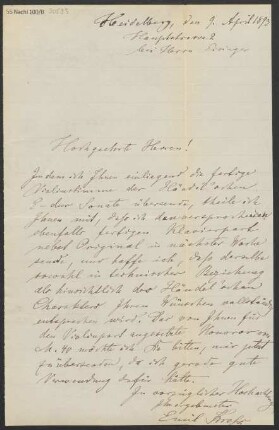 Heidelberg, den 9. April 1893
Hauptstrasse 2
bei Herrn
Hochgeehrte Herren!
Indem ich Ihnen einliegend die fertige
Violinstimme der Händel'schen
E-dur Sonate übersende, theile ich
Ihnen mit, dass ich den versprochenen
ebenfalls fertigen Klavierpart
nebst Original in nächster Woche
sende, und hoffe ich, dass derselbe
sowohl in technischer Beziehung
als hinsichtlich des Händel'schen
Charakters Ihren Wünschen vollständig
entsprechen wird. Das von Ihnen für
den Violinpart angesetzte Honorar von
M. 40 möchte ich Sie bitten, mir jetzt
zu übersenden, da ich gerade gute
Verwendung dafür hätte.
In vorzüglicher Hochachtg
ergebenster
Emil Krohs